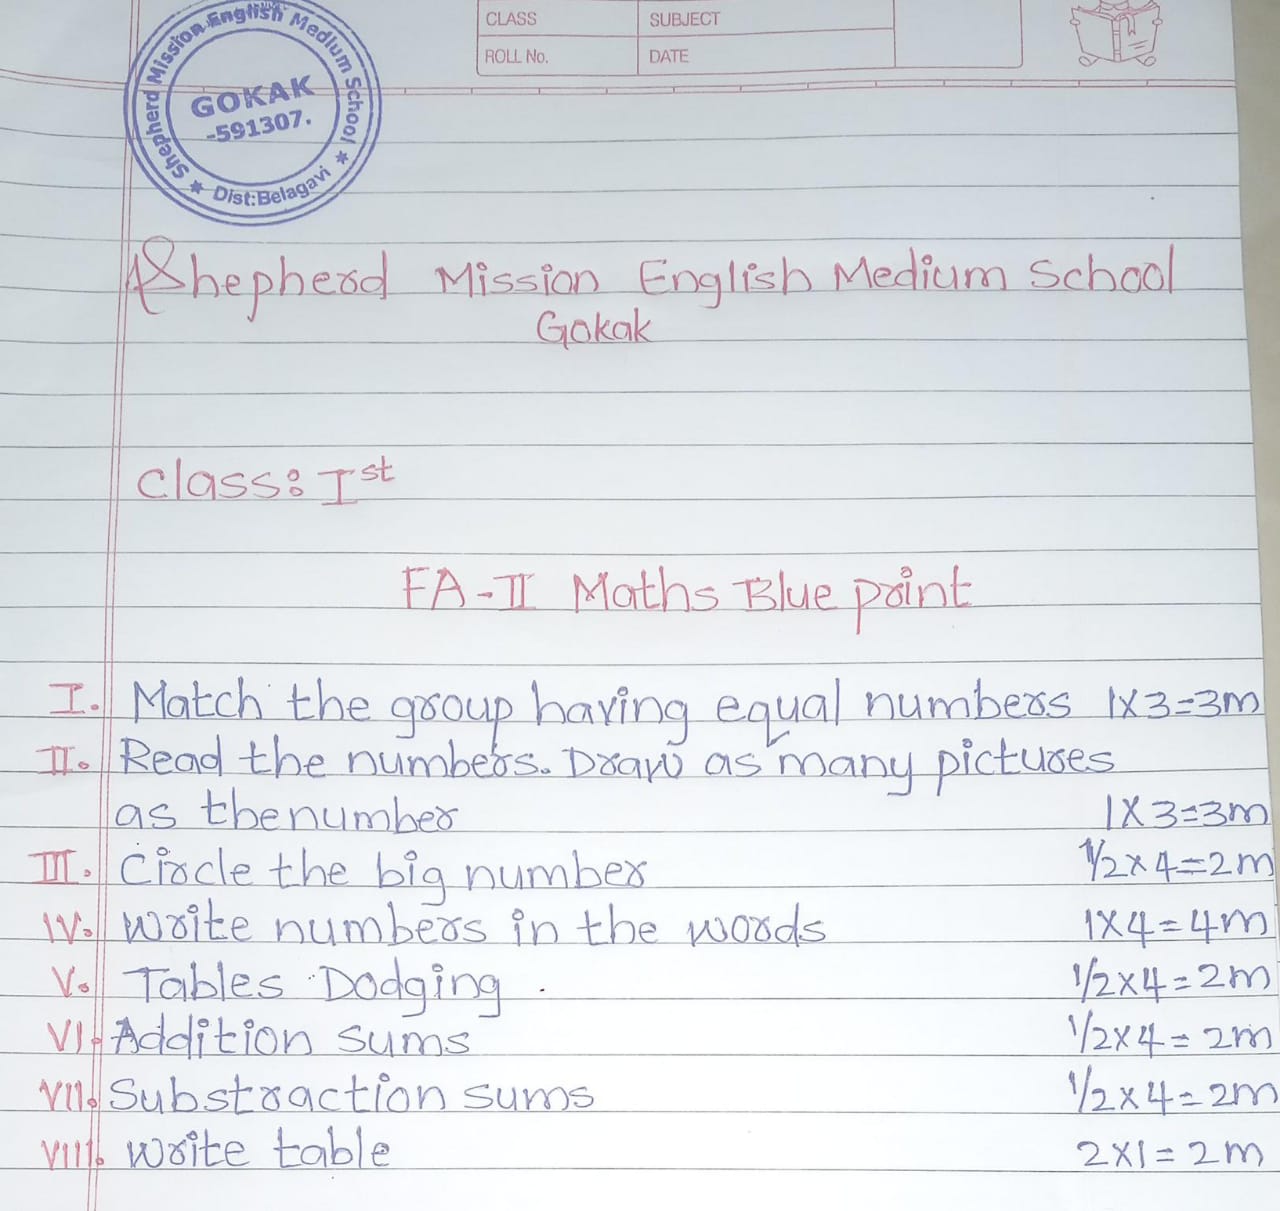 Shepherd Mission English Medium School
GOKAK
-591307.
Dist:Belagavi
CLASS
SUBJECT
ROLL No.
DATE
Shepherd Mission English Medium School
Gokak
class: Ist
FA-II Maths Blue point
I. Match the group having equal numbers 1x3=3m
II. Read the numbers. Draw as many pictures
as the number 1x3=3m
III. Circle the big number 1/2x4=2m
IV. Write numbers in the words 1x4=4m
V. Tables Dodging. 1/2x4=2m
VI. Addition sums 1/2x4=2m
VII. Substraction sums 1/2x4=2m
VIII. Write table 2x1=2m